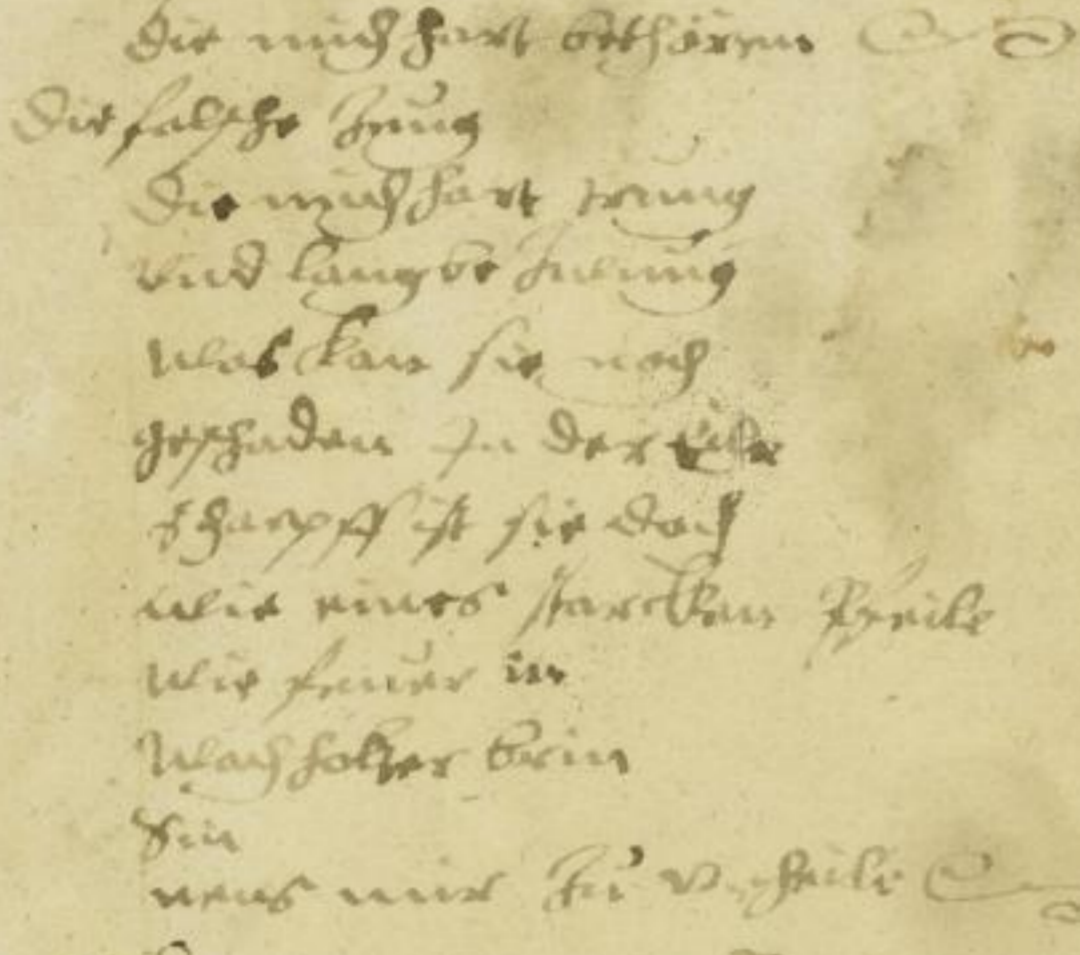 die mich hart bethören
Die falsche Zung
Die mich hart trung
vnd langbe
was kan sie noch
geschaden In der eile
scharpff ist sie doch
wie eines starcken Pfeile
wie feuer im
Wachholter brin
Sein
mir Zu